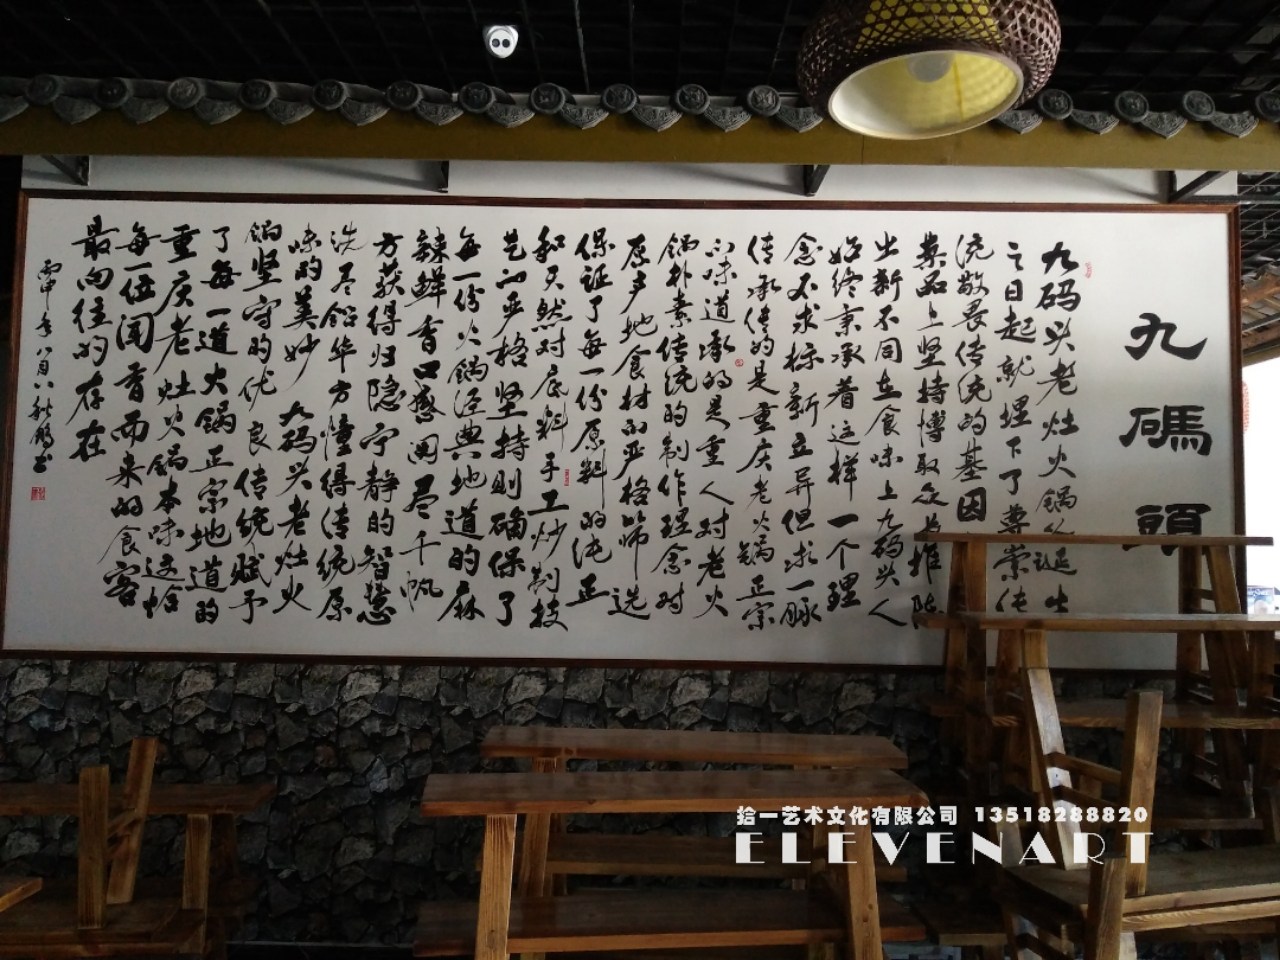 九碼頭
九码头老灶火锅从诞生
之日起就埋下了尊崇传
统敬畏传统的基因
菜品上坚持博取众长推陈
出新不同在食味上九码头人
始终秉承着这样一个理
念不求标新立异但求一脉
传承传的是重庆老火锅正宗
的味道承的是重人对老火
锅朴素传统的制作理念对
原产地食材的严格筛选
保证了每一份原料的纯正
和天然对底料手工炒制技
艺的严格坚持则确保了
每一份火锅经典地道的麻
辣鲜香口感阅尽千帆
方获得归隐宁静的智慧
洗尽铅华方懂得传统原
味的美妙 九码头老灶火
锅坚守的优良传统赋予
了每一道火锅正宗地道的
重庆老灶火锅本味这恰
每一位闻香而来的食客
最向往的存在
丙申年八月八秋鹏书
拾一艺术文化有限公司 13518288820
ELEVENART